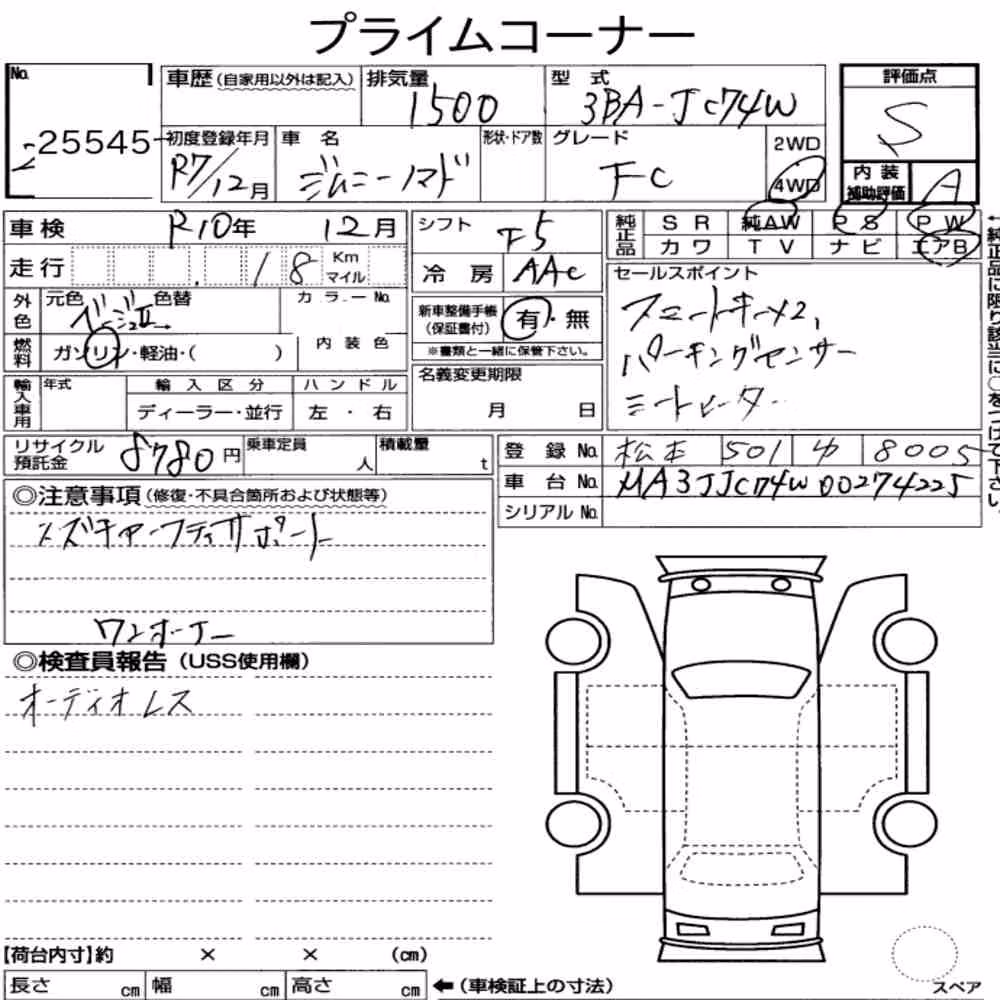 プライムコーナー
No.
25545
車歴(自家用以外は記入)
排気量
1500
型式
3BA-JC74W
評価点
S
初度登録年月
R7/12月
車名
ジムニーノマド
形状・ドア数
グレード
FC
2WD
4WD
内装
補助評価
A
車検 R10年 12月
シフト
F5
純正品
SR 純AW PS PW
カワ TV ナビ エアB
走行 18 Km
マイル
冷房 AAC
セールスポイント
スマートキー×2,
パーキングセンサー
シートヒーター
外色
元色
色替
カラーNo.
内装色
新車整備手帳
(保証書付)
有・無
※書類と一緒に保管下さい。
燃料
ガソリン・軽油・( )
輸入車用
年式
輸入区分
ディーラー・並行
ハンドル
左・右
名義変更期限
月 日
←純正品に限り該当に○をつけて下さい。
リサイクル
預託金
8780円
乗車定員
人
積載量
t
登録No. 松本 501 や 8005
車台No. MA3JJC74W00274225
シリアルNo.
◎注意事項(修復・不具合箇所および状態等)
ワンオーナー
◎検査員報告(USS使用欄)
オーディオレス
【荷台内寸】約 × × (cm)
長さ cm 幅 cm 高さ cm ←(車検証上の寸法)
スペア